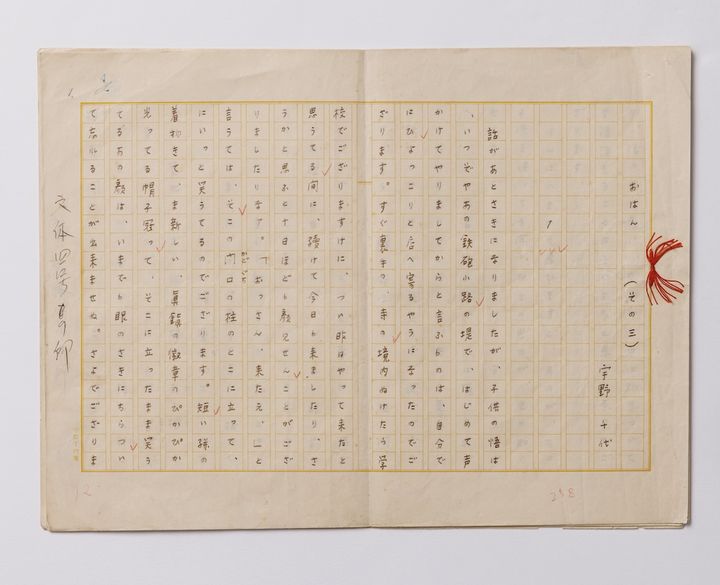 おはん (その三)
宇野 千代
1
話があとさきになりましたが、子供の悟は
、いつぞやあの鉄砲小路の堤で、はじめて声
かけてやりましてからと言ふものは、自分で
にひょっこりと店へ寄るやうになったのでご
ざります。すぐ裏手の、寺の境内ぬけたら学
校でござりますけに、つい昨日やって来たと
思うてる間に、續けて今日も来ましたり、さ
うかと思ふと十日ほども顔見せんことがござ
りましたりなア。「おっさん、来たえ。」と
言うては、そこの門口の柱のとこに立って、
かどぐち
にいっと笑うてるのでござります。短い絣の
着物きて、ま新しい、真鍮の徽章のぴかぴか
光ってる帽子冠って、そこに立ったまま笑う
てるあの顔は、いまでも眼のさきにちらつい
て忘れることが出来ませぬ。さよでござりま
文体四号
258
12